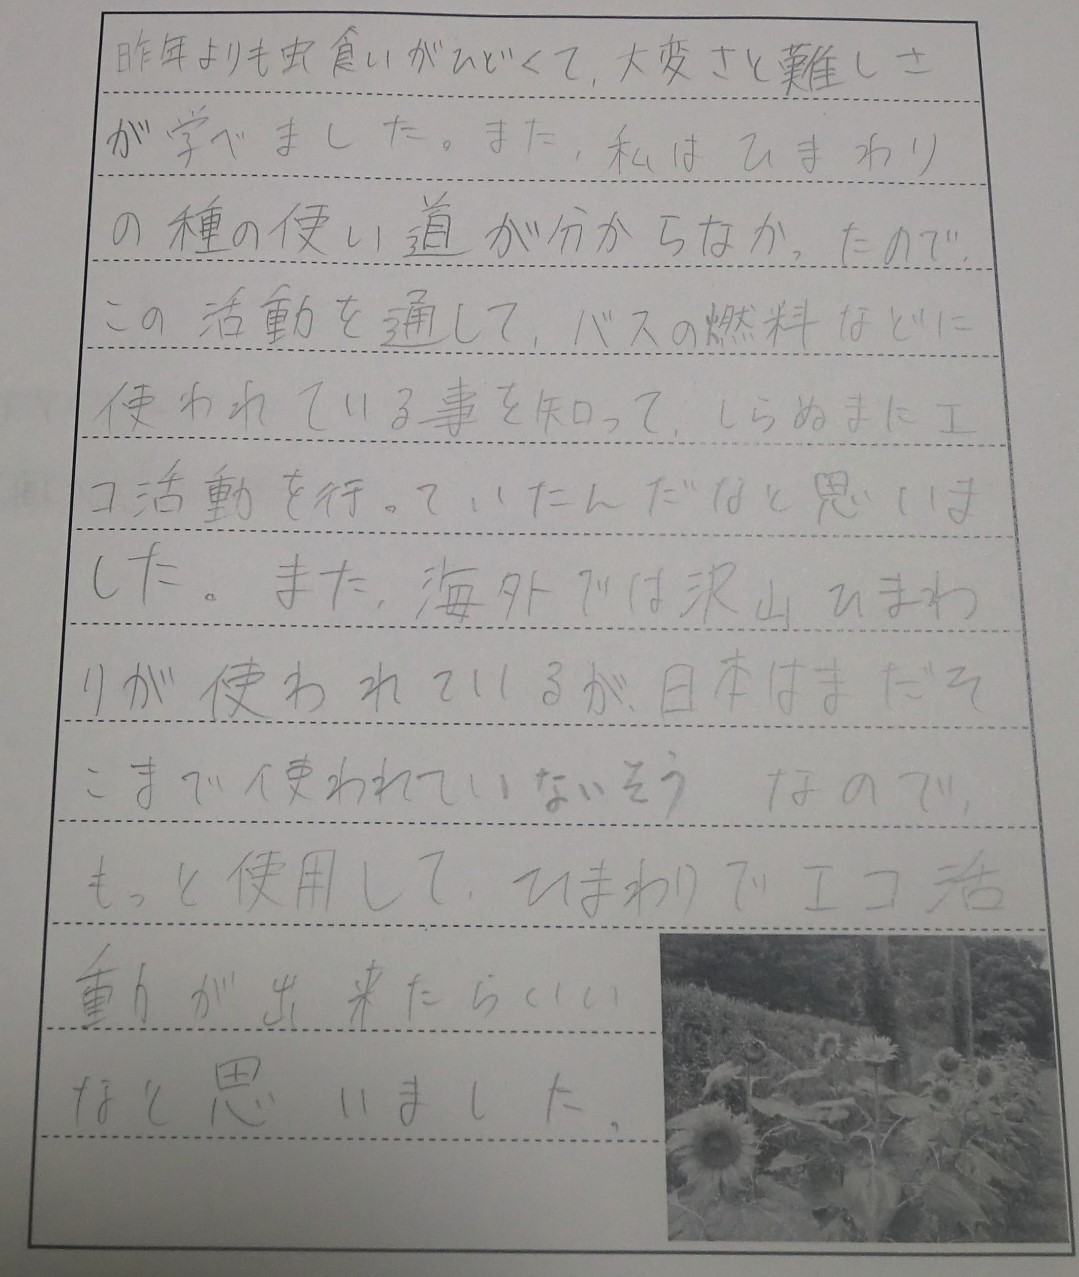 昨年よりも虫食いがひどくて、大変さと難しさ
が学べました。また、私はひまわり
の種の使い道が分からなかったので、
この活動を通して、バスの燃料などに
使われている事を知って、しらぬまにエ
コ活動を行っていたんだなと思いま
した。また、海外では沢山ひまわ
りが使われているが、日本はまだそ
こまで使われていないそうなので、
もっと使用して、ひまわりでエコ活
動が出来たらいい
なと思いました。